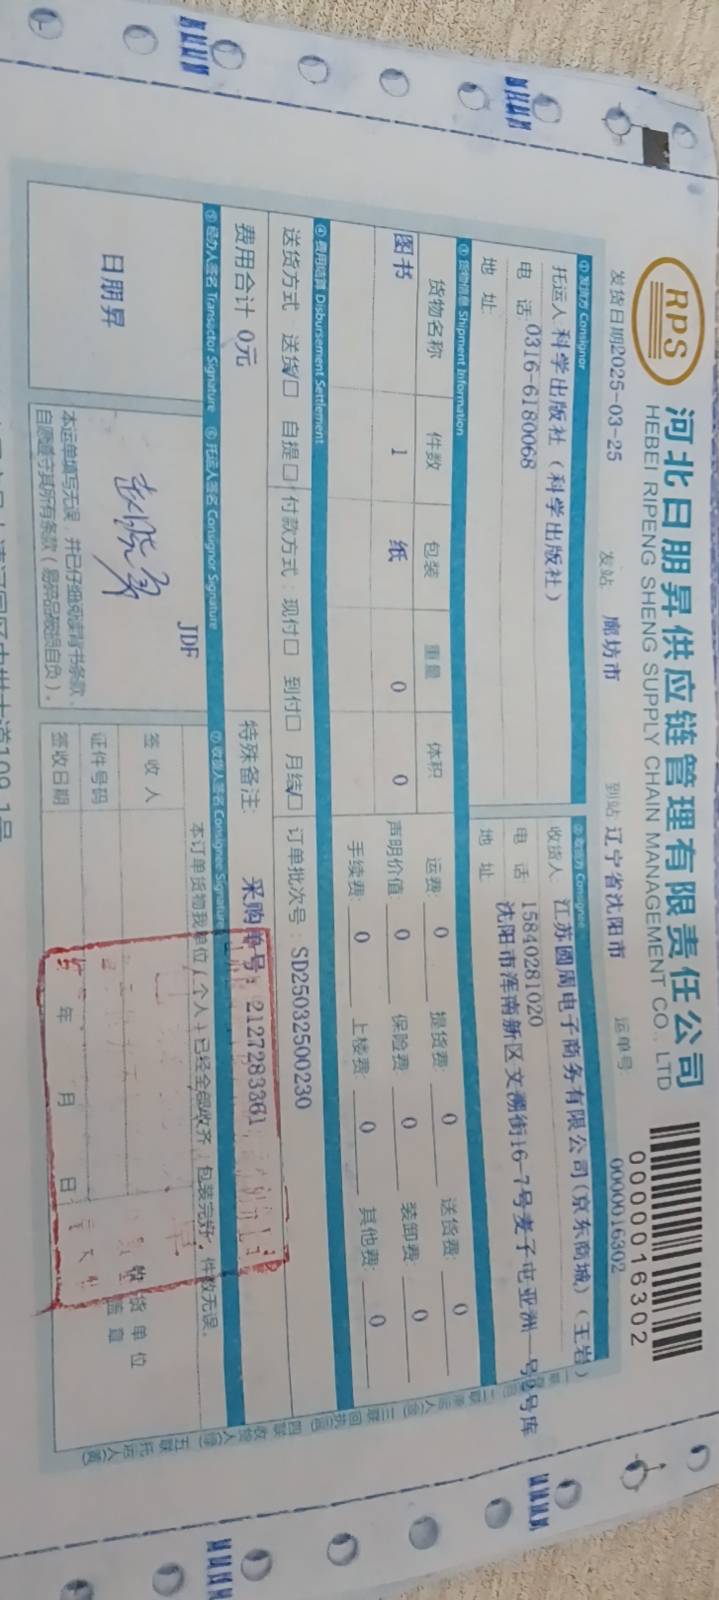 RPS
河北日朋昇供应链管理有限责任公司
HEBEI RIPENG SHENG SUPPLY CHAIN MANAGEMENT CO., LTD
0000016302
发货日期2025-03-25 发站 廊坊市 到站 辽宁省沈阳市 运单号 0000016302
① 发货方 Consignor ② 收货方 Consignee
托运人 科学出版社（科学出版社） 收货人 江苏圆周电子商务有限公司(京东商城)（王岩）
电 话 0316-6180068 电 话 15840281020
地 址 地 址 沈阳市浑南新区文溯街16-7号麦子屯亚洲一号2号库
③ 货物信息 Shipment Information
货物名称 件数 包装 重量 体积 运费: 0 提货费: 0 送货费: 0
图书 1 纸 0 0 声明价值: 0 保险费 0 装卸费: 0
手续费: 0 上楼费: 0 其他费: 0
④ 费用结算 Disbursement Settlement
送货方式 送货☑ 自提□ 付款方式：现付□ 到付□ 月结☑ 订单批次号：SD25032500230
费用合计 0元 特殊备注: 采购单号：2127283361
⑤ 经办人签名 Transector Signature ⑥ 托运人签名 Consignor Signature ⑦ 收货人签名 Consignee Signature
日朋昇
JDF
本运单填写无误，并已仔细阅读背书条款，
自愿遵守其所有条款（易碎品破损自负）。
本订单货物我单位（个人）已经全部收齐，包装完好，件数无误。
签 收 人
证件号码
签收日期 年 月 日
收货单位
盖章